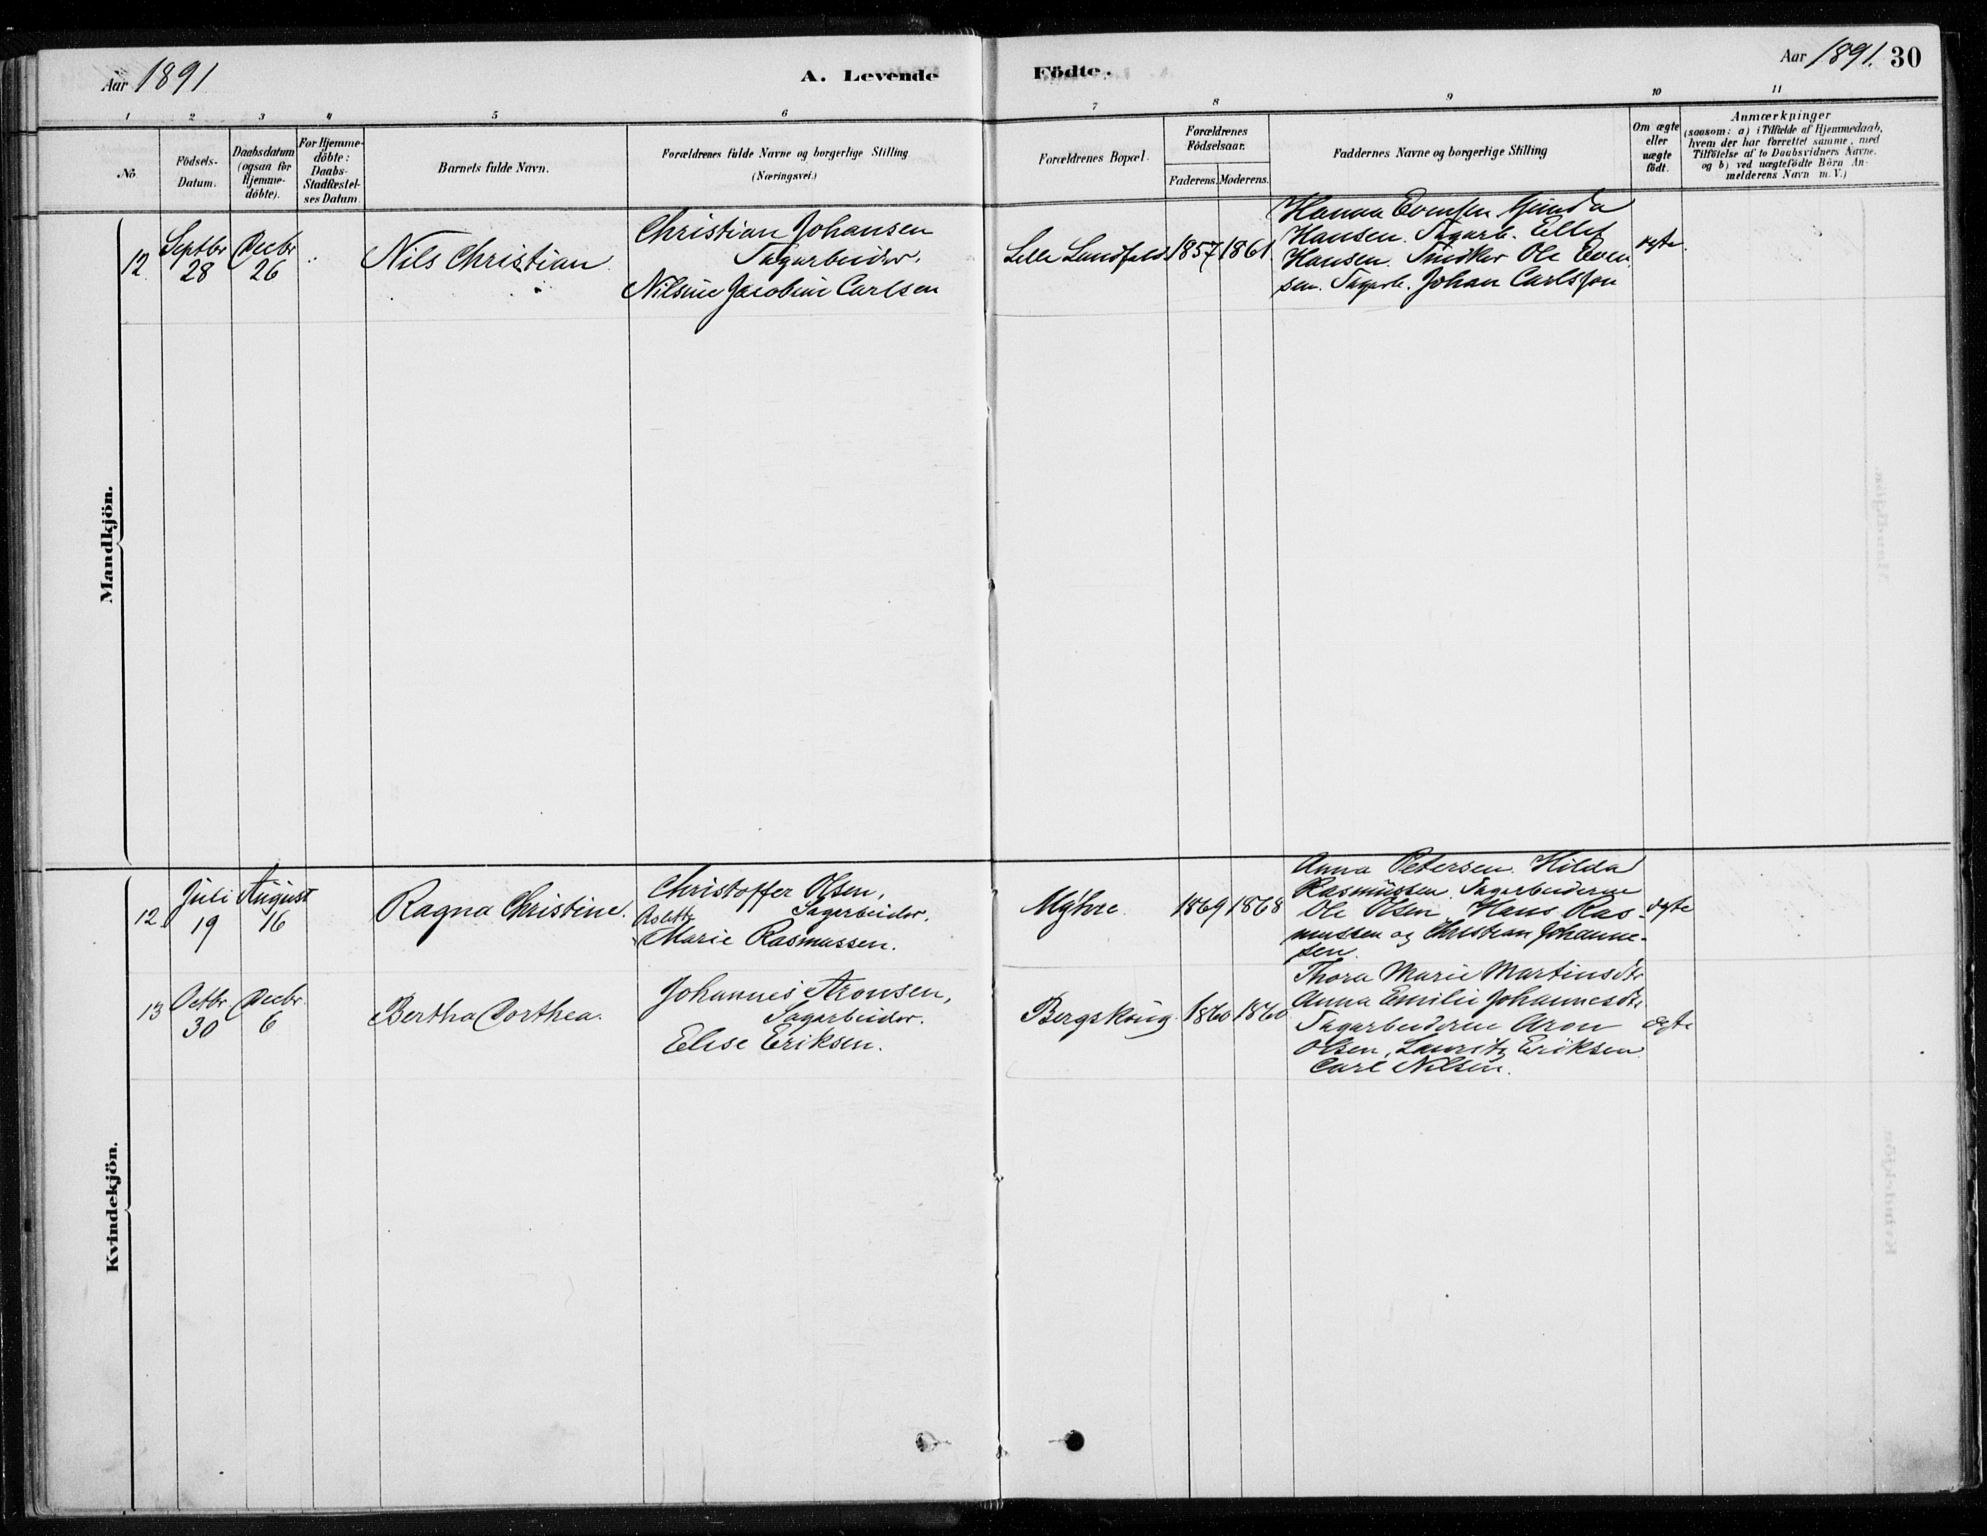 Aar 1891
A. Levende
Födte.
Aar 1891. 30
1 2 3 4 5 6 7 8 9 10 11
No
Födsels-
Datum.
Daabsdatum
(ogsaa for
Hjemme-
döbte).
For Hjemme-
döbte:
Daabs-
Stadfæstel-
ses Datum.
Barnets fulde Navn.
Forældrenes fulde Navne og borgerlige Stilling
(Næringsvei.)
Forældrenes Bopæl.
Forældrenes
Födselsaar.
Faderens. Moderens.
Faddernes Navne og borgerlige Stilling
Om ægte
eller
uægte
födt.
Anmærkninger
(saasom: a) i Tilfælde af Hjemmedaab,
hvem der har forrettet samme, med
Tilföielse af to Daabsvidners Navne.
og b) ved uægtefödte Börn An-
melderens Navn m. V.)
Mandkjön.
12.
Septbr
28
Decbr
26
Nils Christian.
Christian Johansen
Sagarbeider.
Nilsine Jacobine Carlsen
Lille Sundfeld
1857
1861
Hanna Evensen. Gunda
Hansen. Sagarb. Ellef
Hansen. Snedker Ole Even
sen. Sagarb. Johan Carlsson
ægte.
Kvindekjön.
12.
Juli
19
August
16
Ragna Christine.
Christoffer Olsen,
Sagarbeider.
Marie Rasmussen.
Myhre.
1869
1868
Anna Petersen. Hilda
Rasmussen. Sagarbeiderne
Ole Olsen, Hans Ras-
mussen og Christian Johanne-
sen.
ægte
13
Octbr
30
Decbr.
6
Bertha Dorthea.
Johannes Aronsen,
Sagarbeider.
Elise Eriksen.
Bergskoug
1860
1860
Thora Marie Martinsdtr
Anna Emilie Johannesdtr
Sagarbeiderne Aron
Olsen, Lauritz Eriksen
Carl Nilsen.
ægte